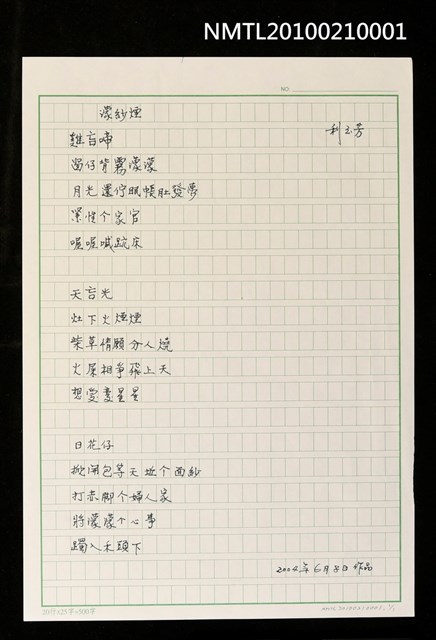 NMTL20100210001
NO.
濛紗煙
利玉芳
雞盲啼
窗仔背霧濛濛
月光還佇眠帳肚發夢
家官
喔喔喊跣床
天盲光
灶下火煙煙
柴草情願分人燒
火屎相爭飛上天
想愛變星星
日花仔
掀開包等天地个面紗
打赤腳个婦人家
將濛濛个心事
躅入禾頭下
2004年6月8日作品
20行×25字=500字